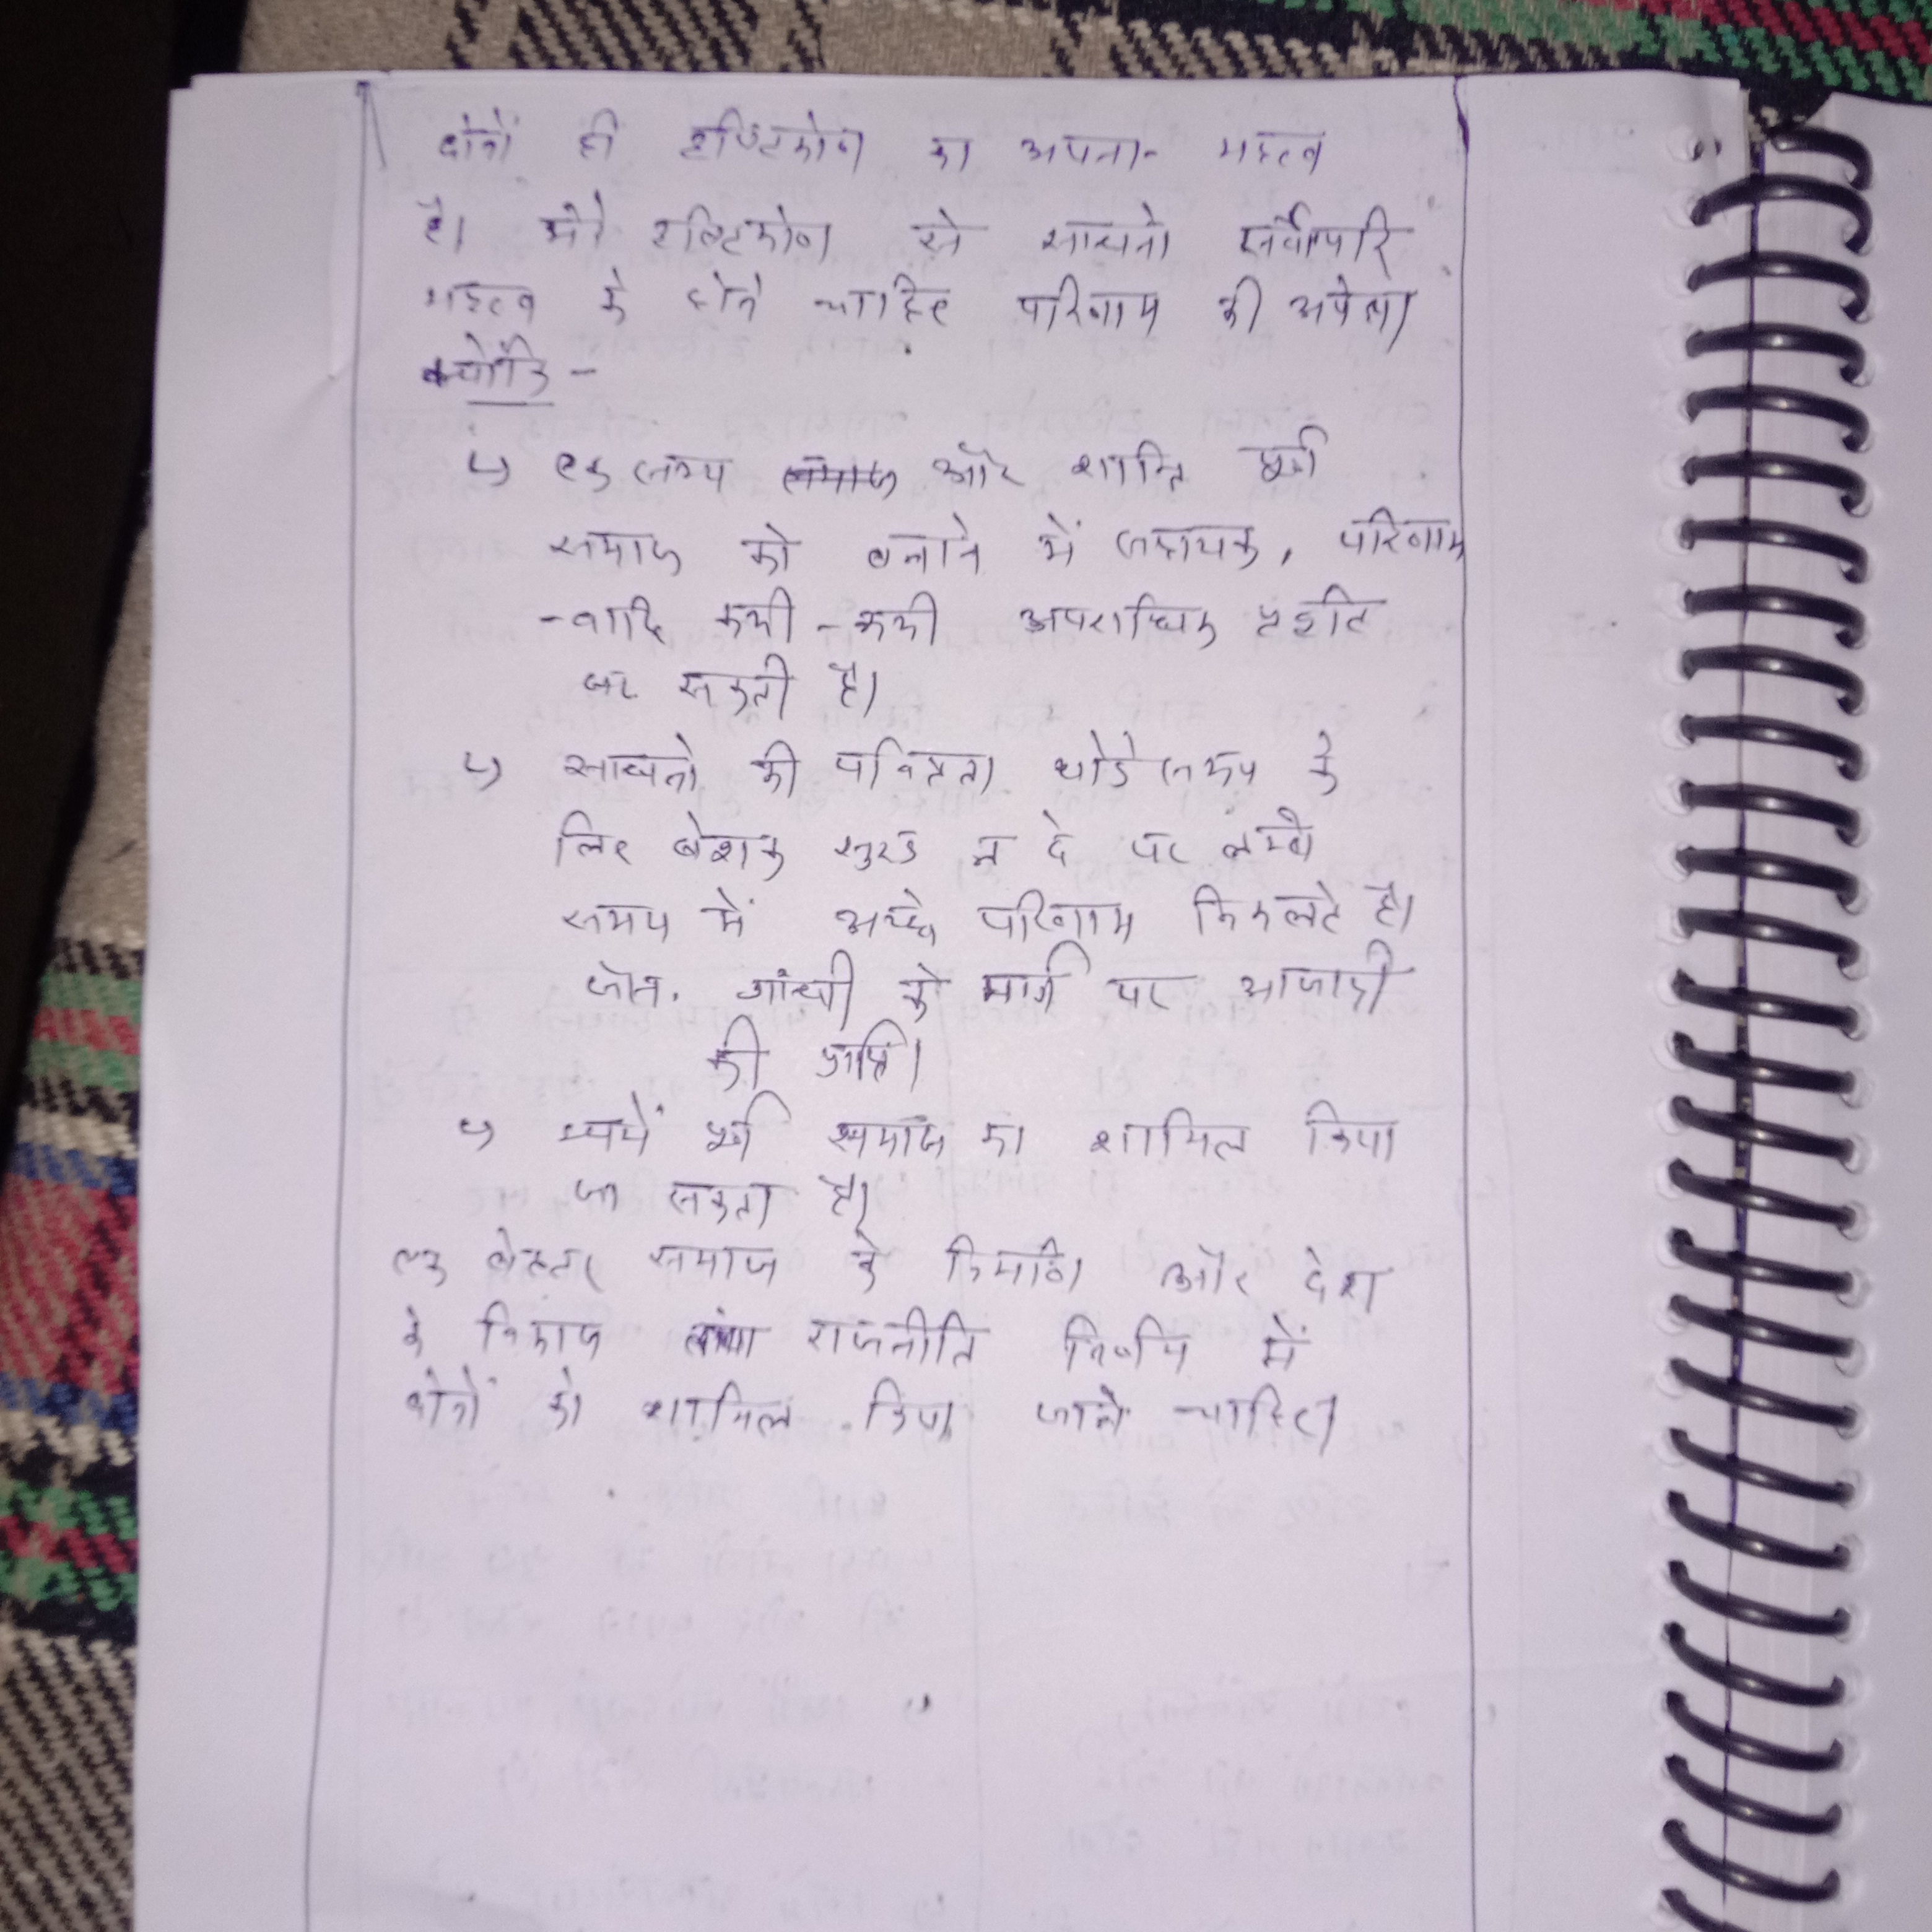 दोनों ही दृष्टिकोण का अपना- महत्व
है। मेरे दृष्टिकोण से साधनो सर्वोपरि
महत्व के होने चाहिए परिणाम की अपेक्षा
क्योंकि -
↳ एक सभ्य और शान्ति पूर्ण
समाज को बनाने में सहायक, परिणाम
-वादि कभी-कभी अपराधिक प्रवृति
कर सकती है।
↳ साधनो की पवित्रता थोडे समय के
लिए बेशक सुख न दे पर लम्बे
समय में अच्छे परिणाम निकलते है।
जैसे. गांधी के मार्ग पर आजादी
की प्राप्ति।
↳ पूर्ण समाज का शामिल किया
जा सकता है।
एक बेहतर समाज के निर्माण और देश
के विकास तथा राजनीति निर्णय में
दोनों को शामिल किए जाने चाहिए।